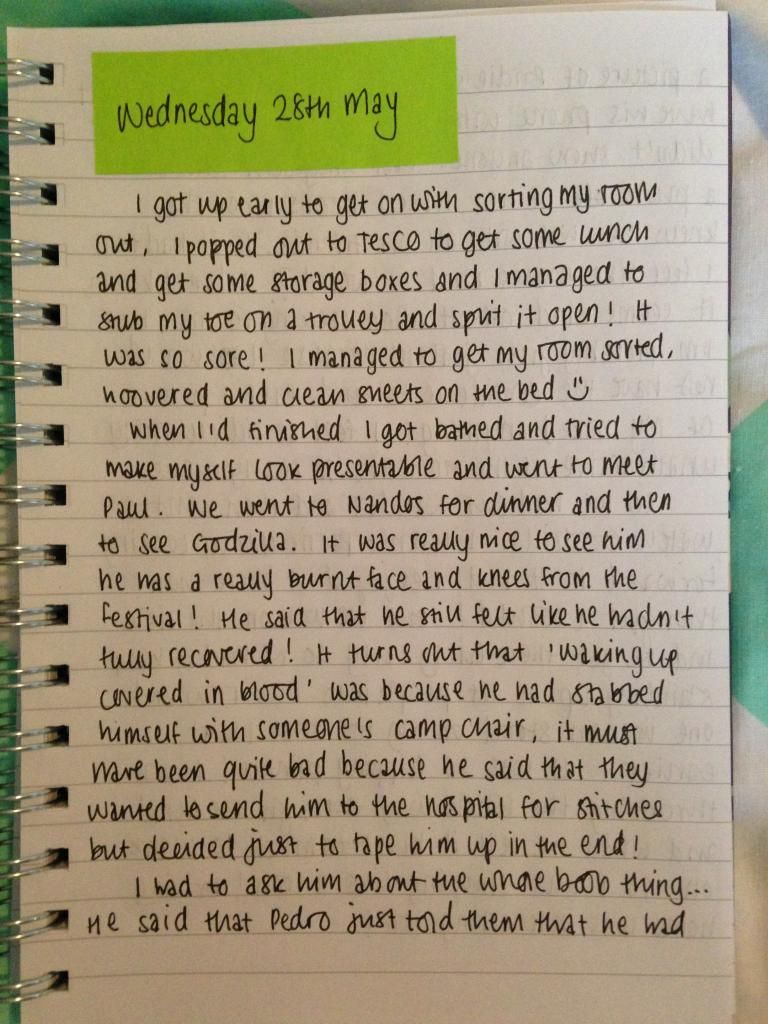 Wednesday 28th May
I got up early to get on with sorting my room
out, I popped out to Tesco to get some lunch
and get some storage boxes and I managed to
stub my toe on a trolley and split it open! It
was so sore! I managed to get my room sorted,
hoovered and clean sheets on the bed
When I'd finished I got bathed and tried to
make myself look presentable and went to meet
Paul. We went to Nandos for dinner and then
to see Godzilla. It was really nice to see him
he has a really burnt face and knees from the
festival! He said that he still felt like he hadn't
fully recovered! It turns out that 'waking up
covered in blood' was because he had stabbed
himself with someone's camp chair, it must
have been quite bad because he said that they
wanted to send him to the hospital for stitches
but decided just to tape him up in the end!
I had to ask him about the whole boob thing...
He said that Pedro just told them that he had